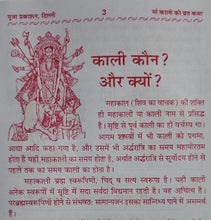 पूजा प्रकाशन, दिल्ली
3
माँ काली की व्रत कथा
काली कौन?
और क्यों?
महाकाल (शिव का वाचक) की शक्ति
ही महाकाली या काली नाम से प्रसिद्ध
है। सृष्टि से पूर्व काली का ही वर्चस्व था।
आगम शास्त्रों में भी काली को प्रथमा,
आद्या आदि कहा गया है, और उसमें भी अर्द्धरात्रि का समय महाघोरतम
होता है यही महाकाली का समय होता है, अर्थात अर्द्धरात्रि से सूर्योदय होने से
पहले तक का समय काली का होता है।
महाकाली ब्रह्म स्वरूपिणी, चिद् व सत्य स्वरूपा है। यही काली
अनेक स्वरूपों में सृष्टि में सदा सर्वदा विद्यमान रहती है। यह अचिन्त्य है।
परब्रह्मस्वरूपिणी होने से संभवतः सामान्यजन इसका साक्षात्कार न कर सकें,